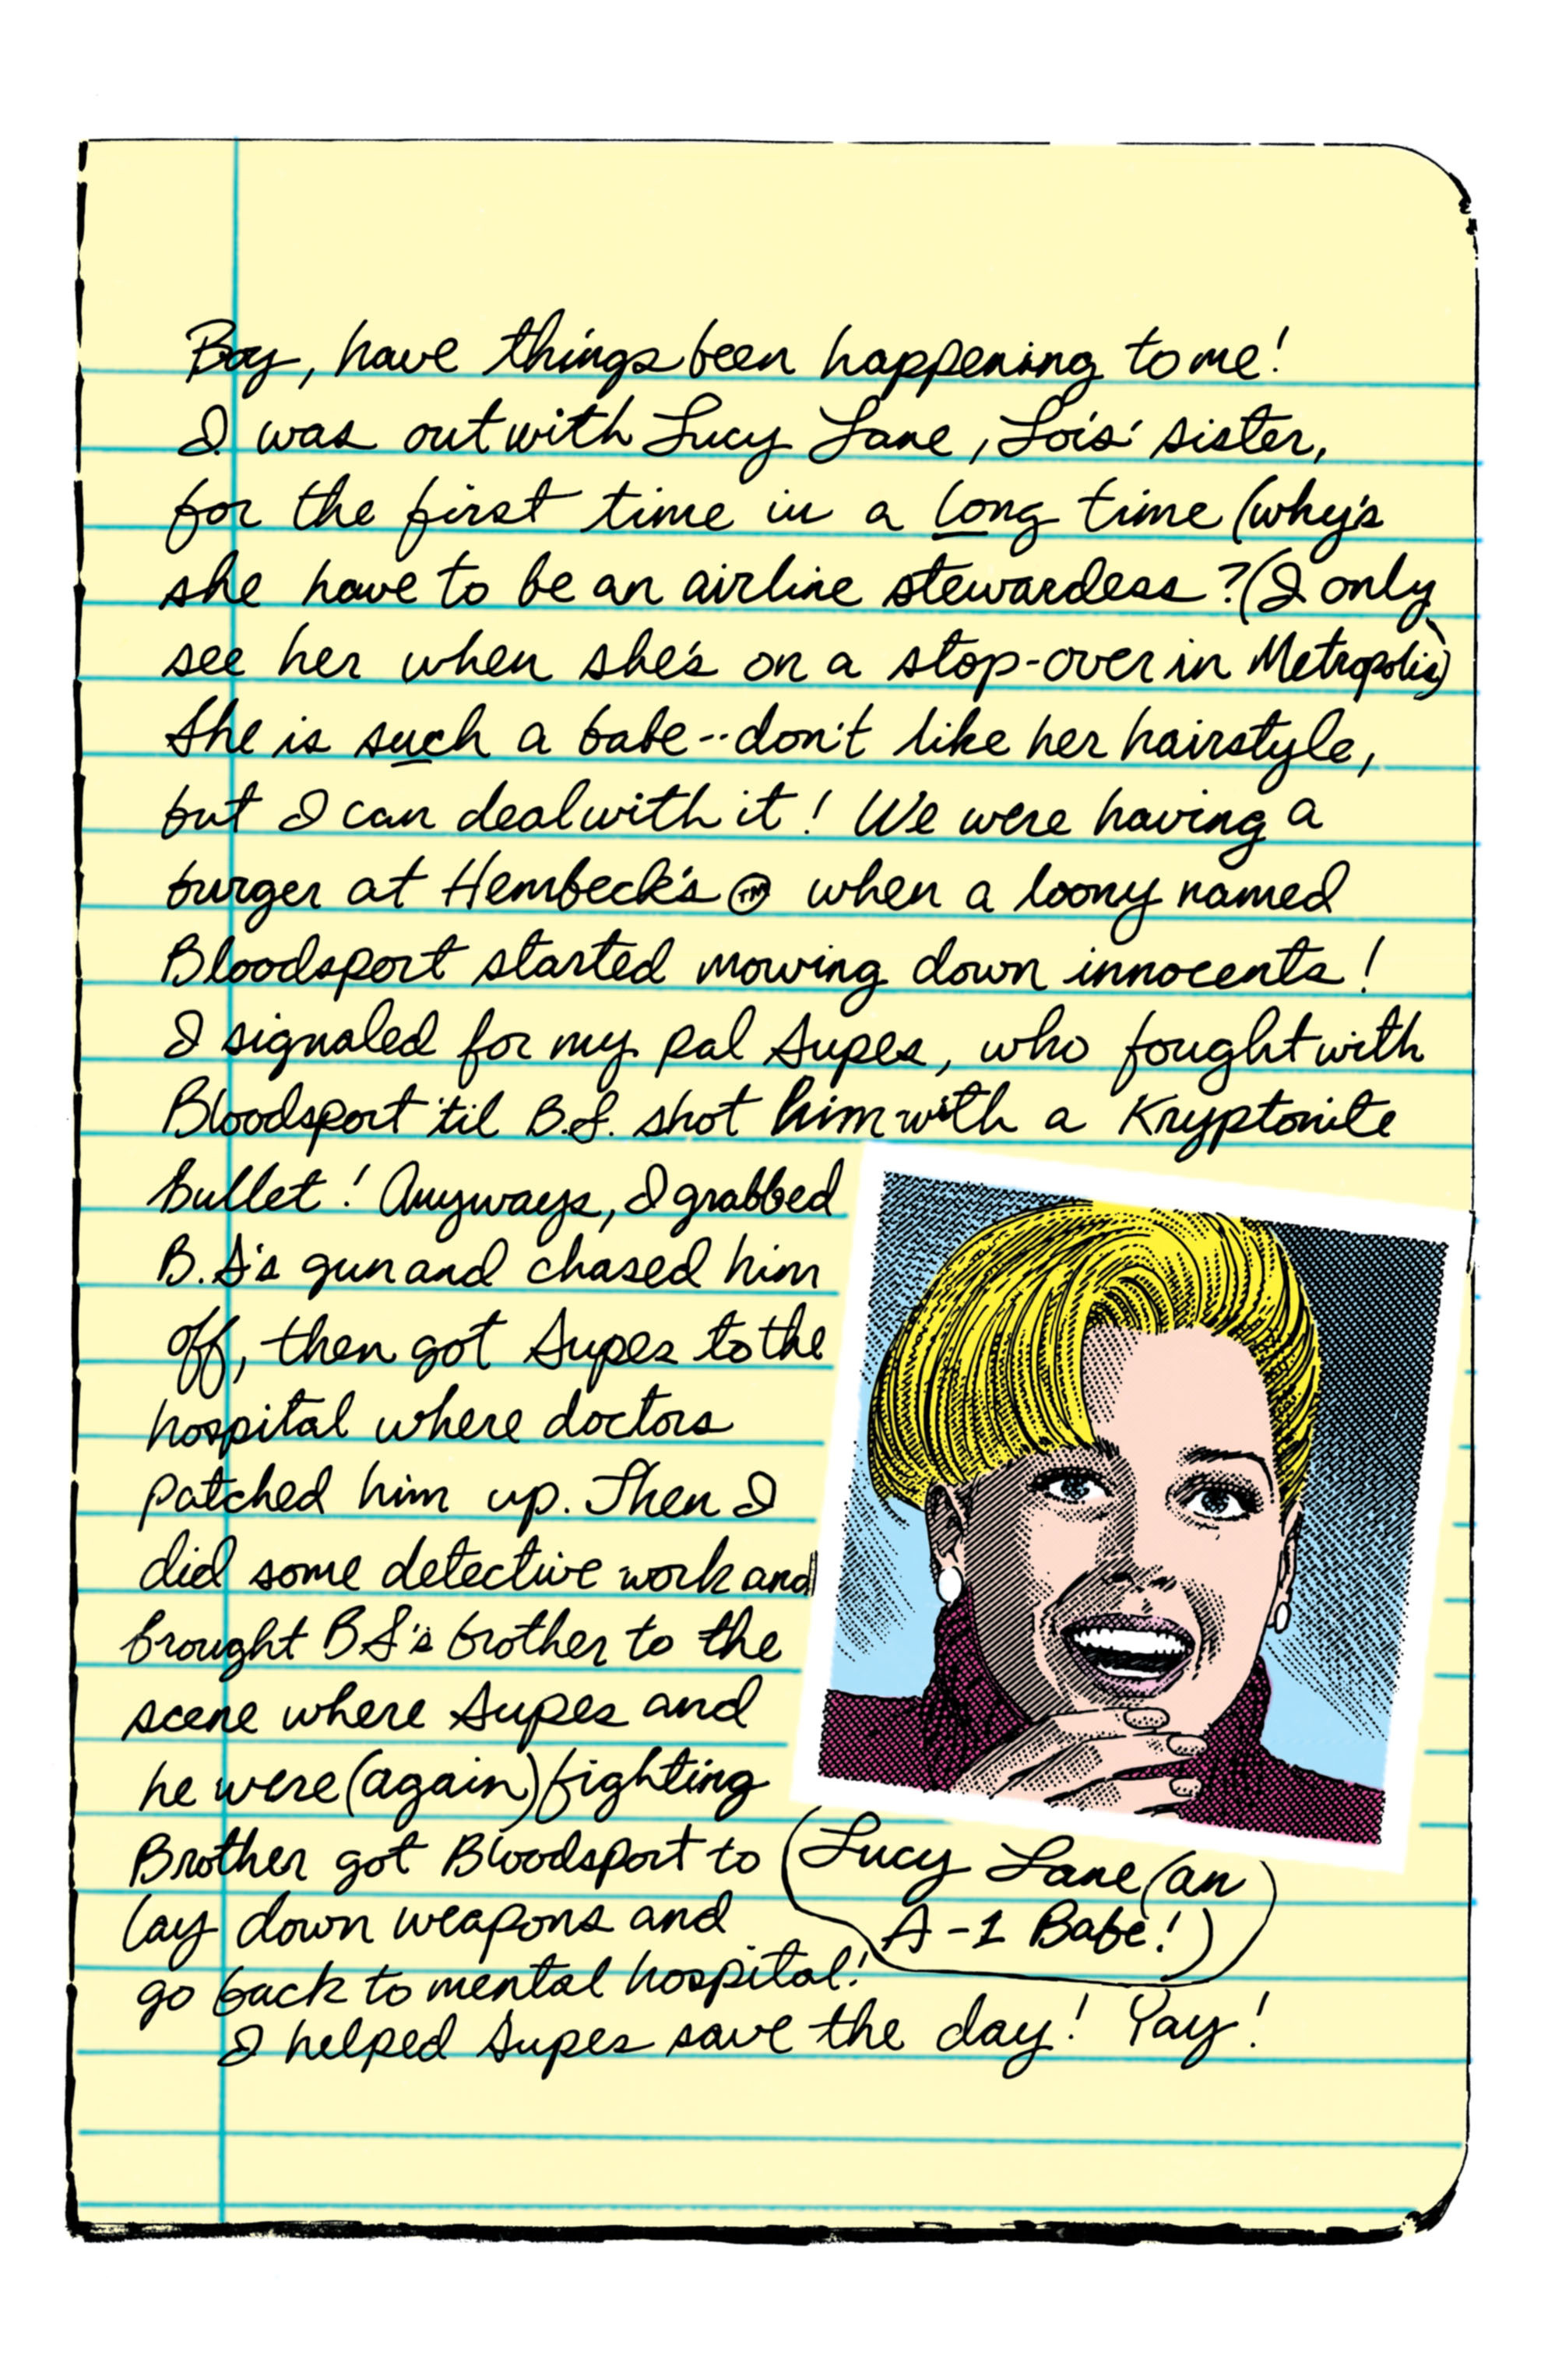 Boy, have things been happening to me!
I was out with Lucy Lane, Lois' sister,
for the first time in a long time (why's
she have to be an airline stewardess? (I only
see her when she's on a stop-over in Metropolis)
She is such a babe--don't like her hairstyle,
but I can deal with it! We were having a
burger at Hembeck's ™ when a loony named
Bloodsport started mowing down innocents!
I signaled for my pal Supes, who fought with
Bloodsport 'til B.S. shot him with a Kryptonite
bullet! Anyways, I grabbed
B.S's gun and chased him
off, then got Supes to the
hospital where doctors
patched him up. Then I
did some detective work and
brought BS's brother to the
scene where Supes and
he were (again) fighting
Brother got Bloodsport to
lay down weapons and
go back to mental hospital!
I helped Supes save the day! Yay!
Lucy Lane (an
A-1 Babe!)